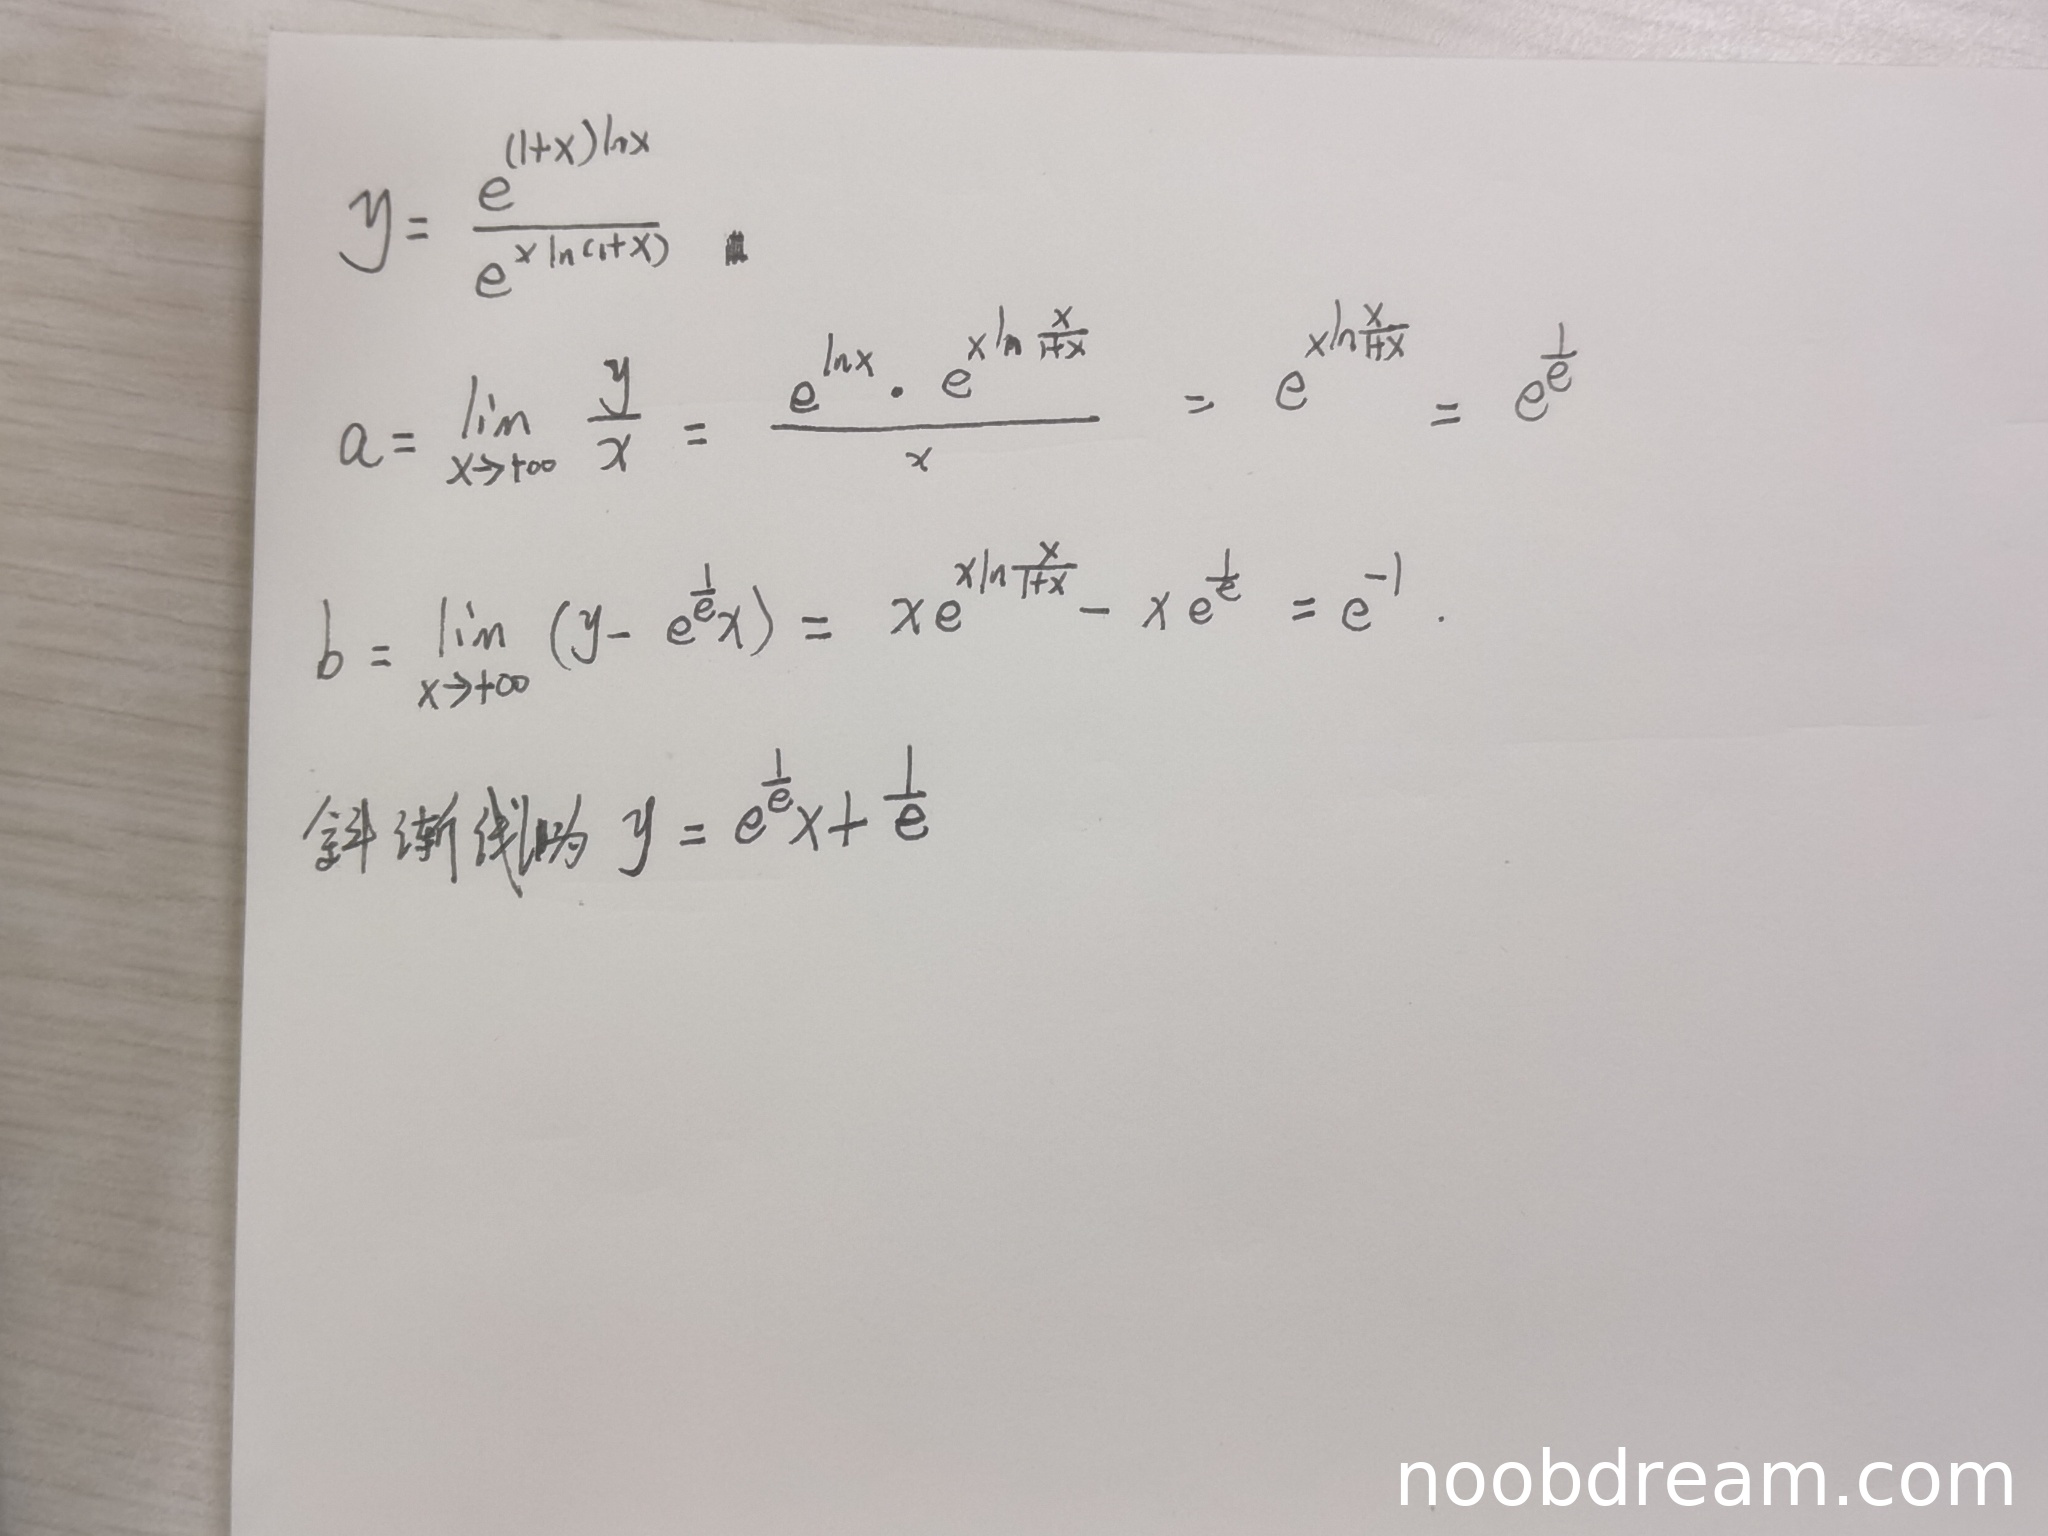 y = \frac{e^{(1+x)lnx}}{e^{x ln(1+x)}}
a = \lim_{x→+∞} \frac{y}{x} = \frac{e^{lnx} · e^{x ln \frac{x}{1+x}}}{x} = e^{xln\frac{x}{1+x}} = e^{\frac{1}{e}}
b = \lim_{x→+∞} (y - e^{\frac{1}{e}}x) = xe^{xln\frac{x}{1+x}} - xe^{\frac{1}{e}} = e^{-1}.
斜渐线为 y = e^{\frac{1}{e}}x + \frac{1}{e}
noobdream.com